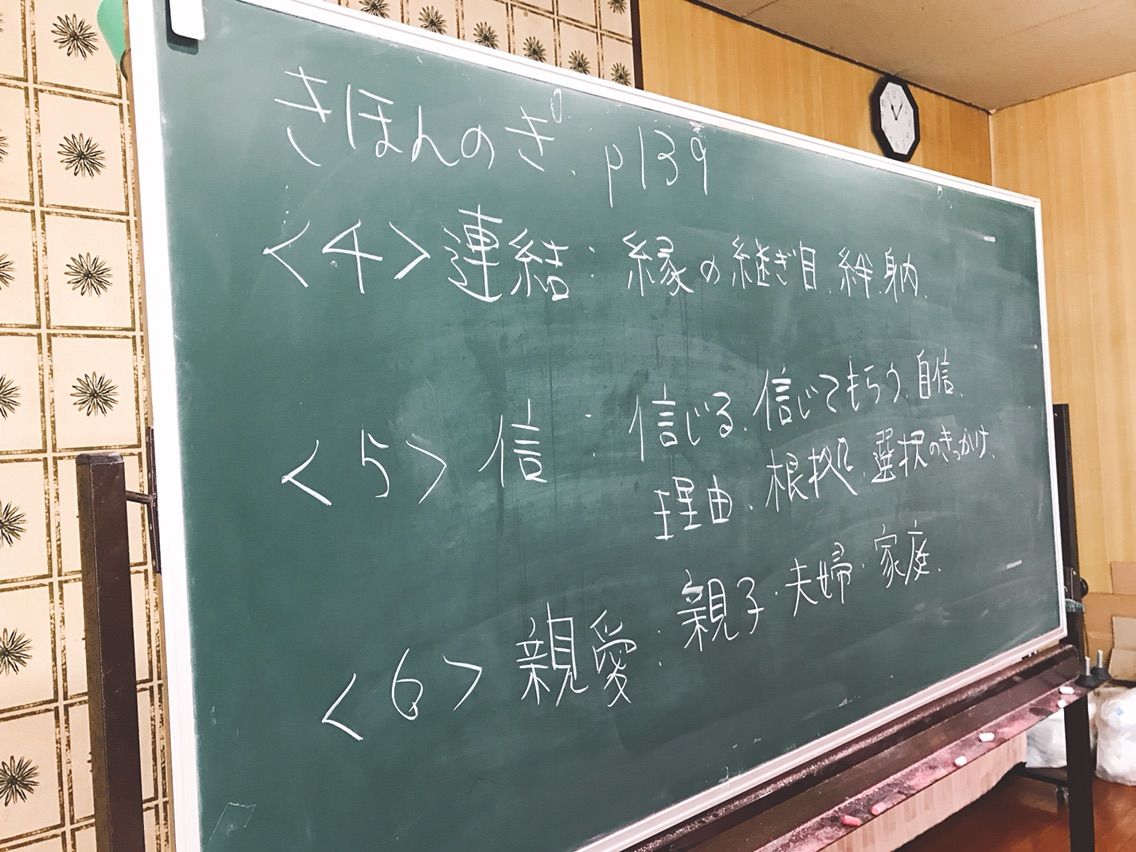 きほんのぎ、p139
<4>連結：縁の継ぎ目、絆、身内、
<5>信：信じる、信じてもらう、自信、
理由、根拠、選択のきっかけ、
<6>親愛：親子・夫婦・家庭、